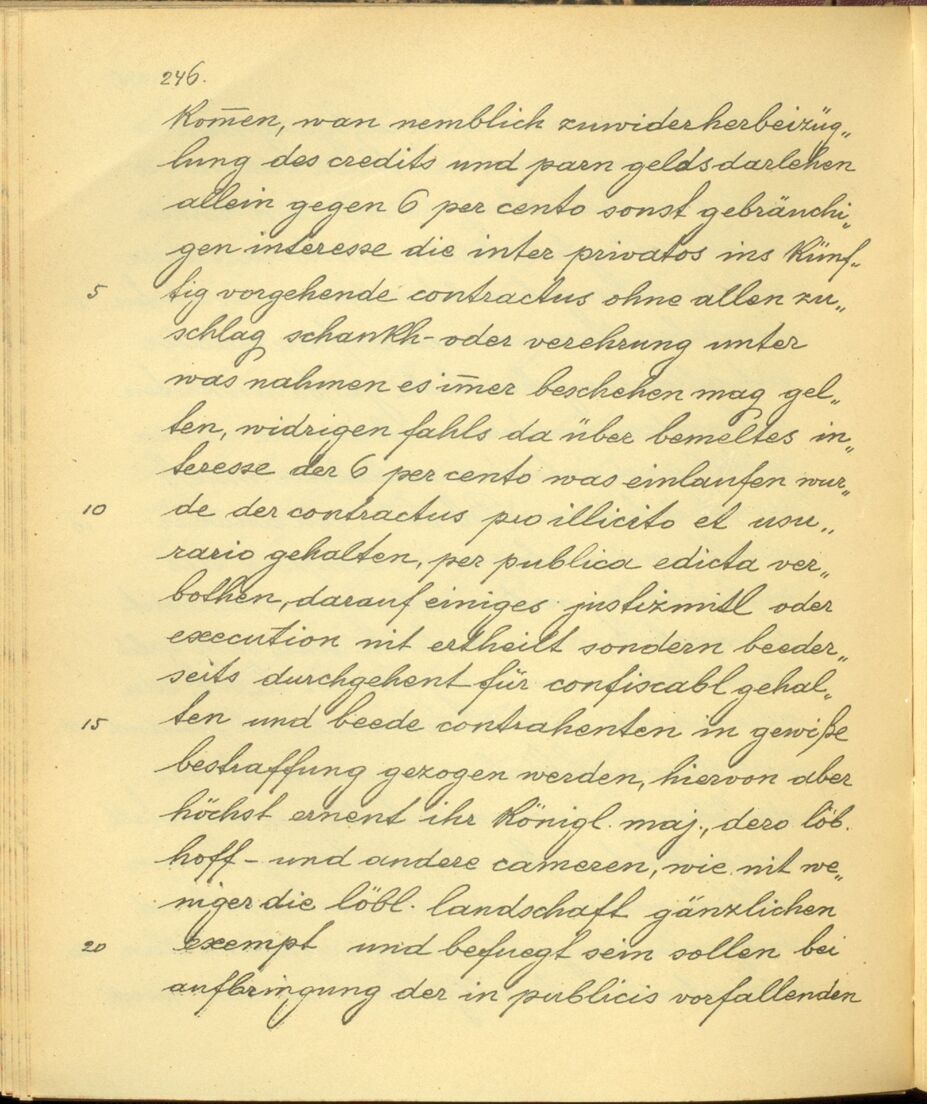 246.
kom̅en, wan nemblich zuwiderherbeizüg„
lung des credits und parn gelds darlehen
allein gegen 6 per cento sonst gebräuchi„
gen interesse die inter privatos ins künf„
5 tig vorgehende contractus ohne allen zu„
schlag schankh- oder verehrung unter
was nahmen es im̅er beschehen mag gel„
ten, widrigen fahls da über bemeltes in„
teresse der 6 per cento was einlaufen wur„
10 de der contractus pro illicito et usu„
rario gehalten, per publica edicta ver„
bothen, darauf einiges justizmitl oder
execution nit ertheilt sondern beeder„
seits durchgehent für confiscabl gehal„
15 ten und beede contrahenten in gewiße
bestraffung gezogen werden, hiervon aber
höchst ernent ihr königl. maj., dero löb.
hoff- und andere cameren, wie nit we„
niger die löbl. landschaft gänzlichen
20 exempt und befuegt sein sollen bei
aufbringung der in publicis vorfallenden